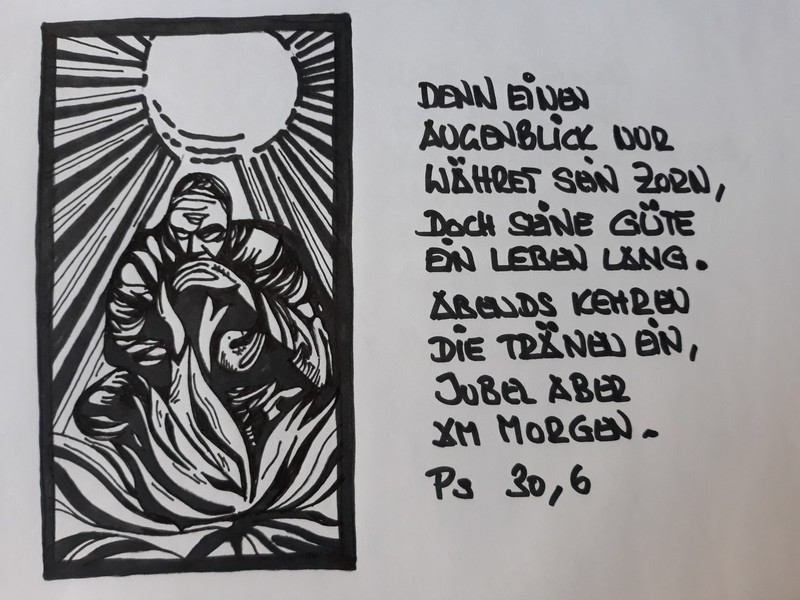 DENN EINEN
AUGENBLICK NUR
WÄHRET SEIN ZORN,
DOCH SEINE GÜTE
EIN LEBEN LANG.
ABENDS KEHREN
DIE TRÄNEN EIN,
JUBEL ABER
AM MORGEN.
Ps 30,6